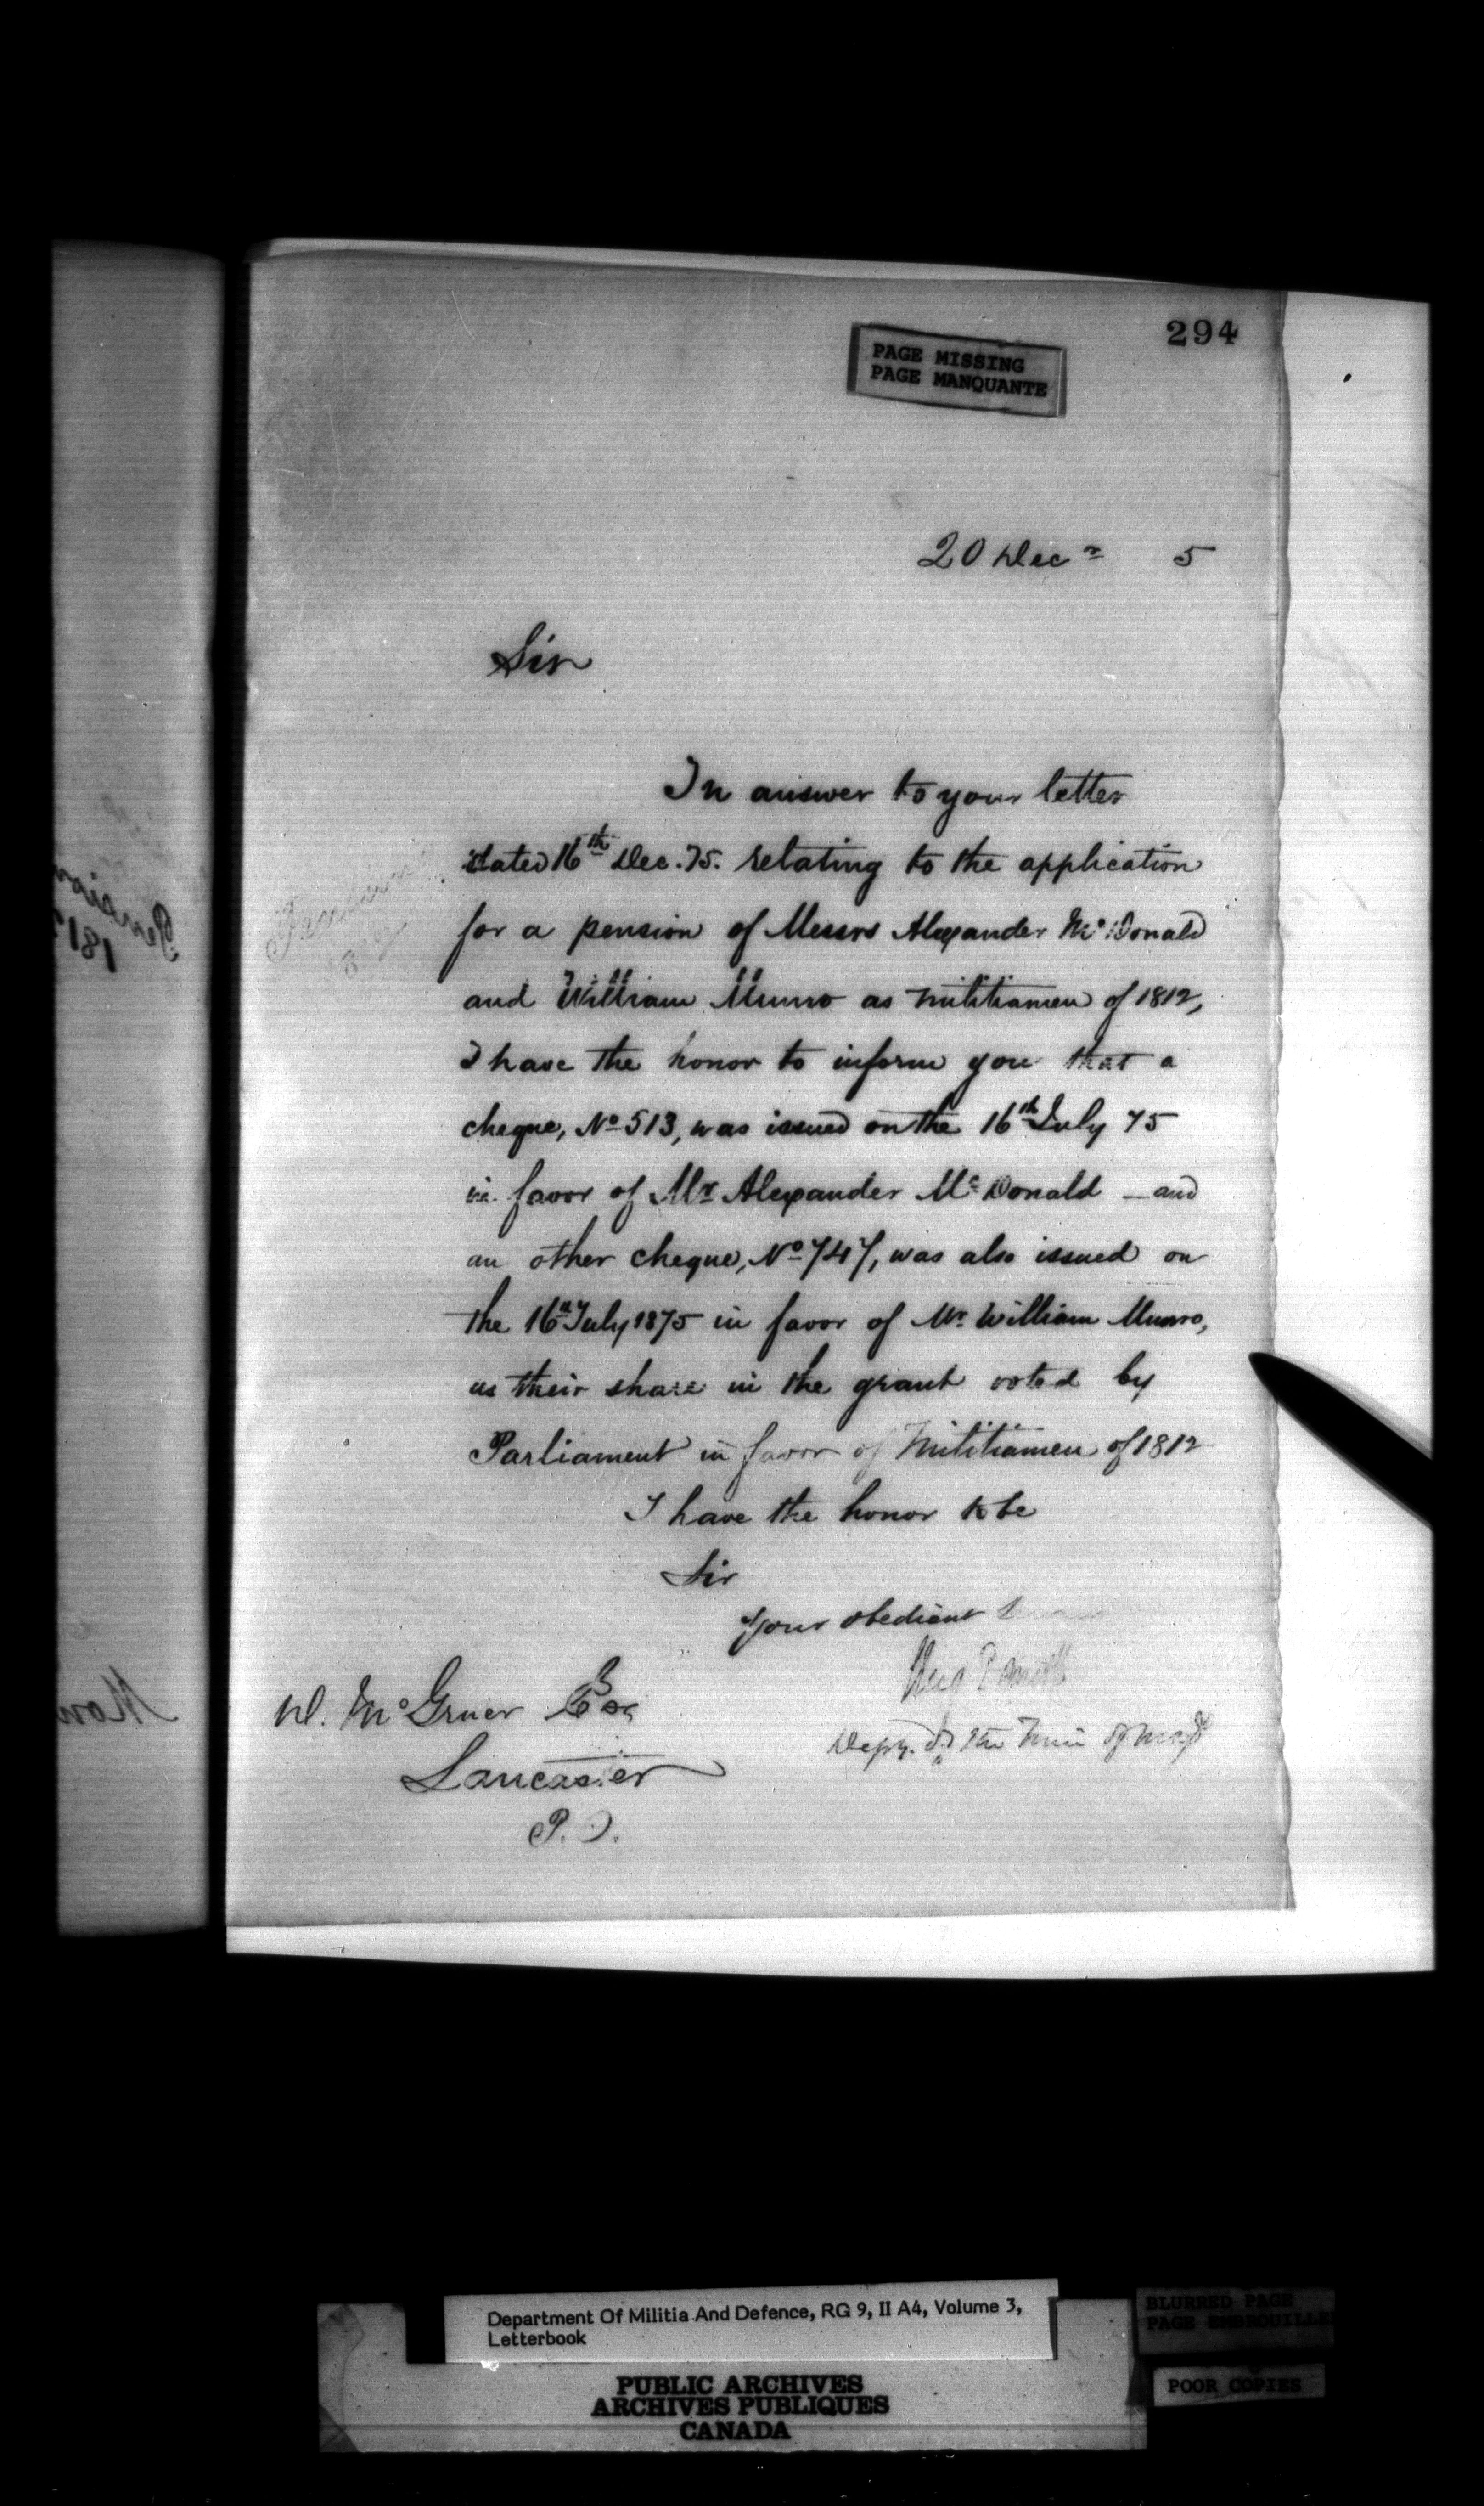 294
PAGE MISSING
PAGE MANQUANTE
20 Decr 5
Sir
In answer to your letter
dated 16th Dec. 75. relating to the application
for a pension of Messrs Alexander McDonald
and William Munro as militiamen of 1812,
I have the honor to inform you that a
cheque, No 513, was issued on the 16th July 75
in favor of Mr Alexander McDonald - and
an other cheque, No 747, was also issued on
the 16th July 1875 in favor of Mr William Munro,
as their share in the grant voted by
Parliament in favor of Militiamen of 1812
I have the honor to be
Sir
Your obedient
D. McGruer Esq
Lancaster
P.O.
Department Of Militia And Defence, RG 9, II A4, Volume 3,
Letterbook
PUBLIC ARCHIVES
ARCHIVES PUBLIQUES
CANADA
BLURRED PAGE
PAGE EMBROUILLE
POOR COPIES